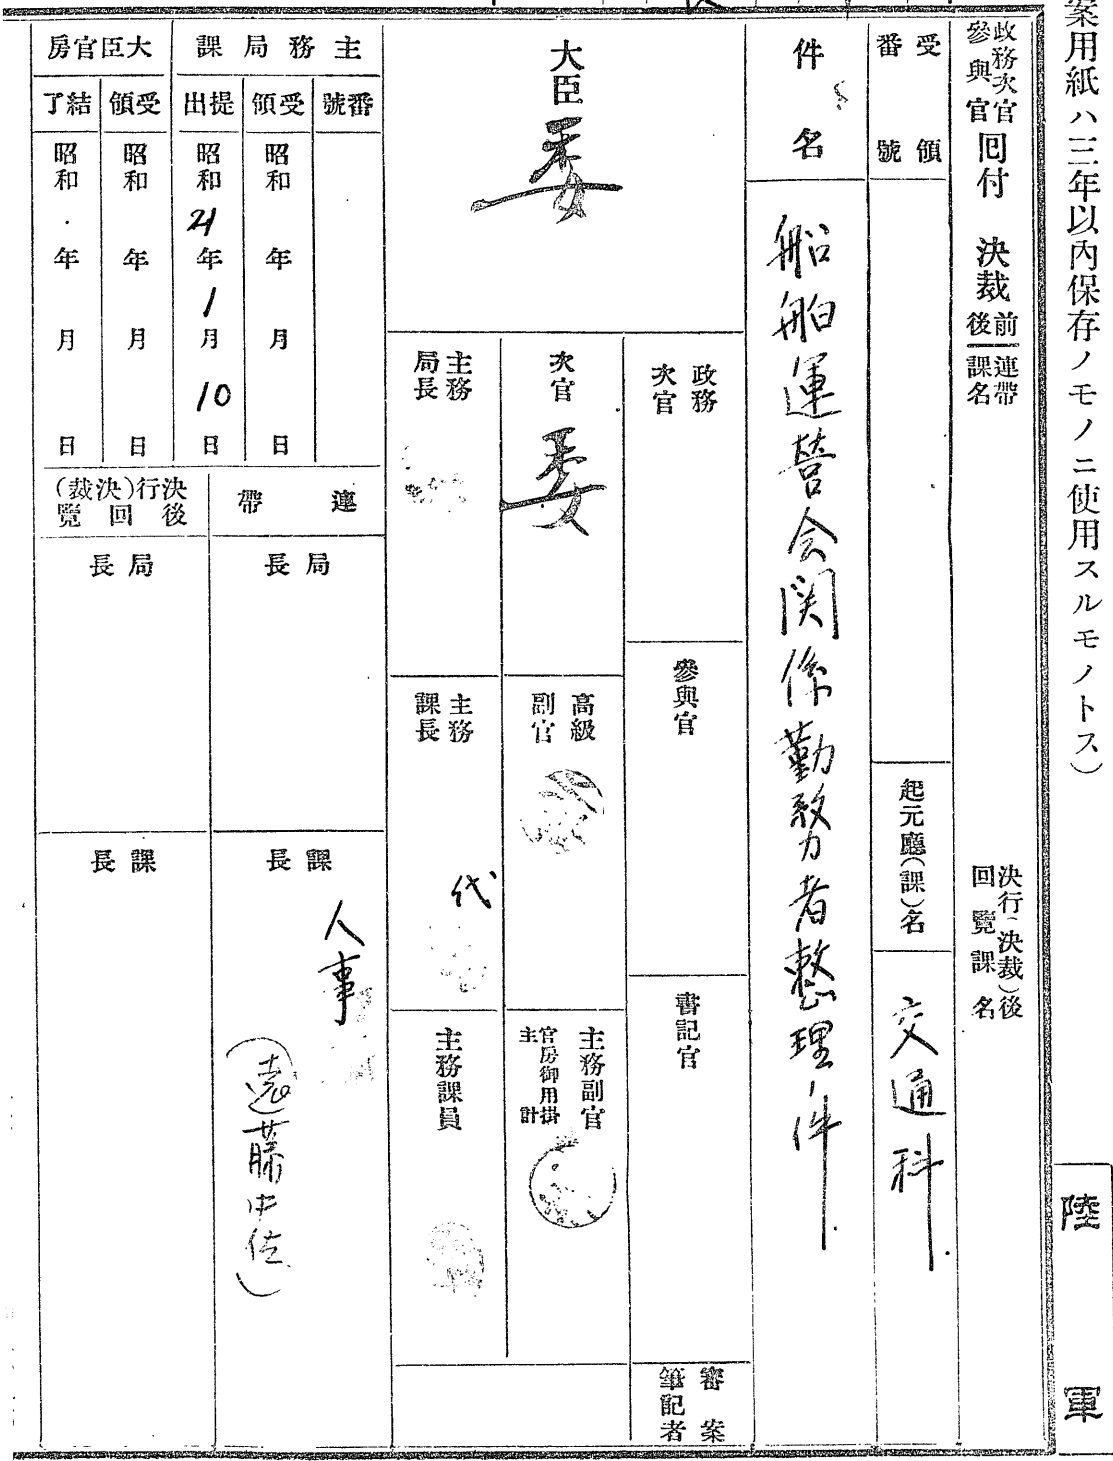 案用紙ハ三年以內保存ノモノニ使用スルモノトス)
陸
軍
政務次官
參與官
回付
決裁前後
連帶課名
決行(決裁)後
回覽課名
受領番號
起元廳(課)名
交通科
件名
船舶運営会関係勤労者整理ノ件
大臣
委
政務次官
參與官
書記官
審案
筆記者
次官
委
高級副官
主務副官
官房御用掛
主計
主務局長
主務課長
代
主務課員
主務局課
番號
受領
昭和 年 月 日
提出
昭和21年1月10日
大臣官房
受領
昭和 年 月 日
結了
昭和 年 月 日
連帶
局長
課長
人事
(遠藤中佐)
決行(決裁)後回覽
局長
課長